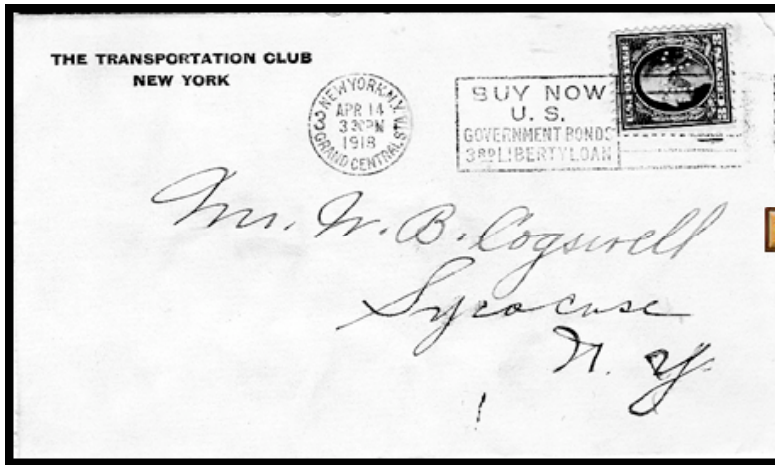 THE TRANSPORTATION CLUB
NEW YORK
NEW YORK, N.Y.
APR 14
3 30 PM
1918
GRAND CENTRAL STA.
3
BUY NOW
U. S.
GOVERNMENT BONDS
3RD LIBERTY LOAN
Mr. W. B. Cogswell
Syracuse
N. Y.